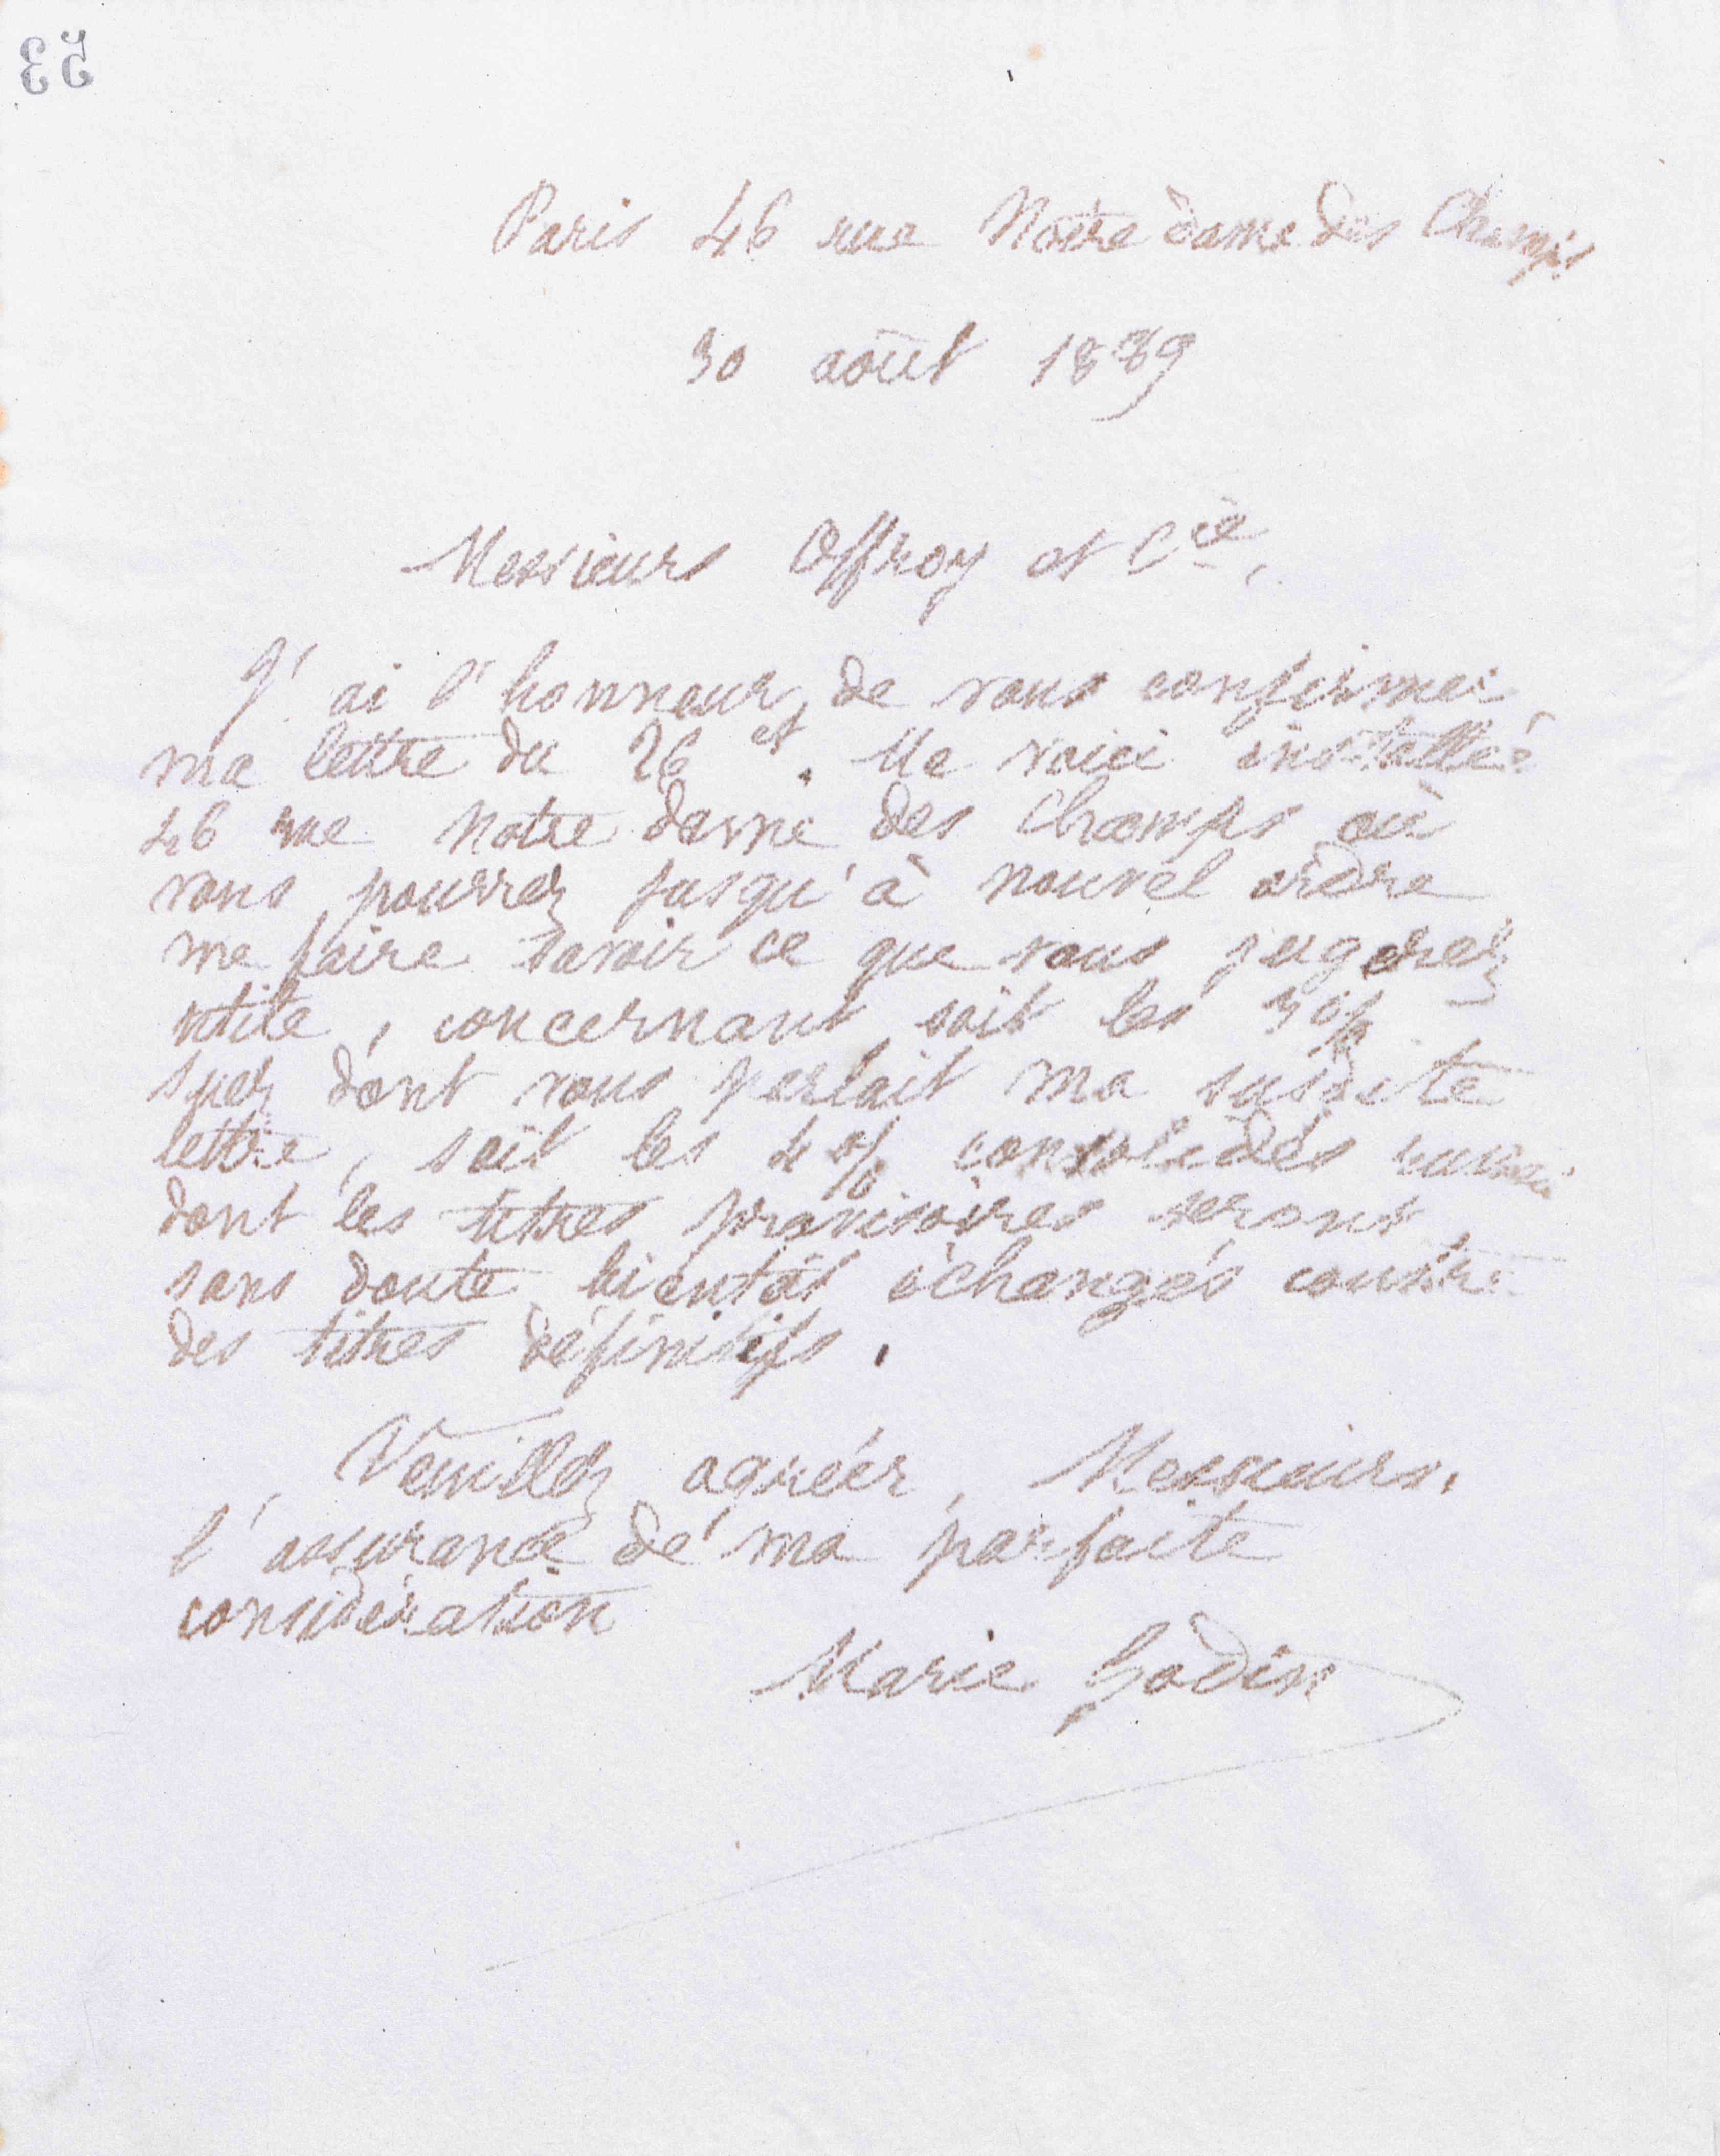 53
Paris 46 rue Notre dame des Champs
30 août 1889
Messieurs Offroy et Cie,
J'ai l'honneur de vous confirmer
ma lettre du 26 ct. Me voici installée
46 rue Notre dame des Champs où
vous pourrez jusqu'à nouvel ordre
me faire savoir ce que vous jugerez
utile, concernant soit les 3 %
Suez dont vous parlait ma susdite
lettre, soit les 4 % consolidés russes
dont les titres provisoires seront
sans doute bientôt échangés contre
des titres définitifs.
Veuillez agréer, Messieurs,
l'assurance de ma parfaite
considération
Marie Godin